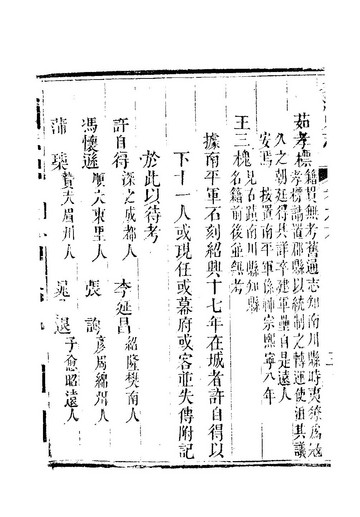 茹孝標籍貫無考舊通志知南川縣時夷
孝標請置郡縣以統制之轉運使沮其議
久之朝廷得其詳卒建軍壘自是遠人
安焉 按置南平軍係神宗熙寧八年
王三槐見石蹟南川縣知縣
名籍前後並無考
據南平軍石刻紹興十七年在城者許自得以
下十一人或現任或幕府或客並失傳附記
於此以待考
許自得深之成都人 李延昌紹隆樊南人
馮懷遜順夫東里人 張 彥周綿州人
蒲 贊夫眉州人 晁 子愈昭遠人